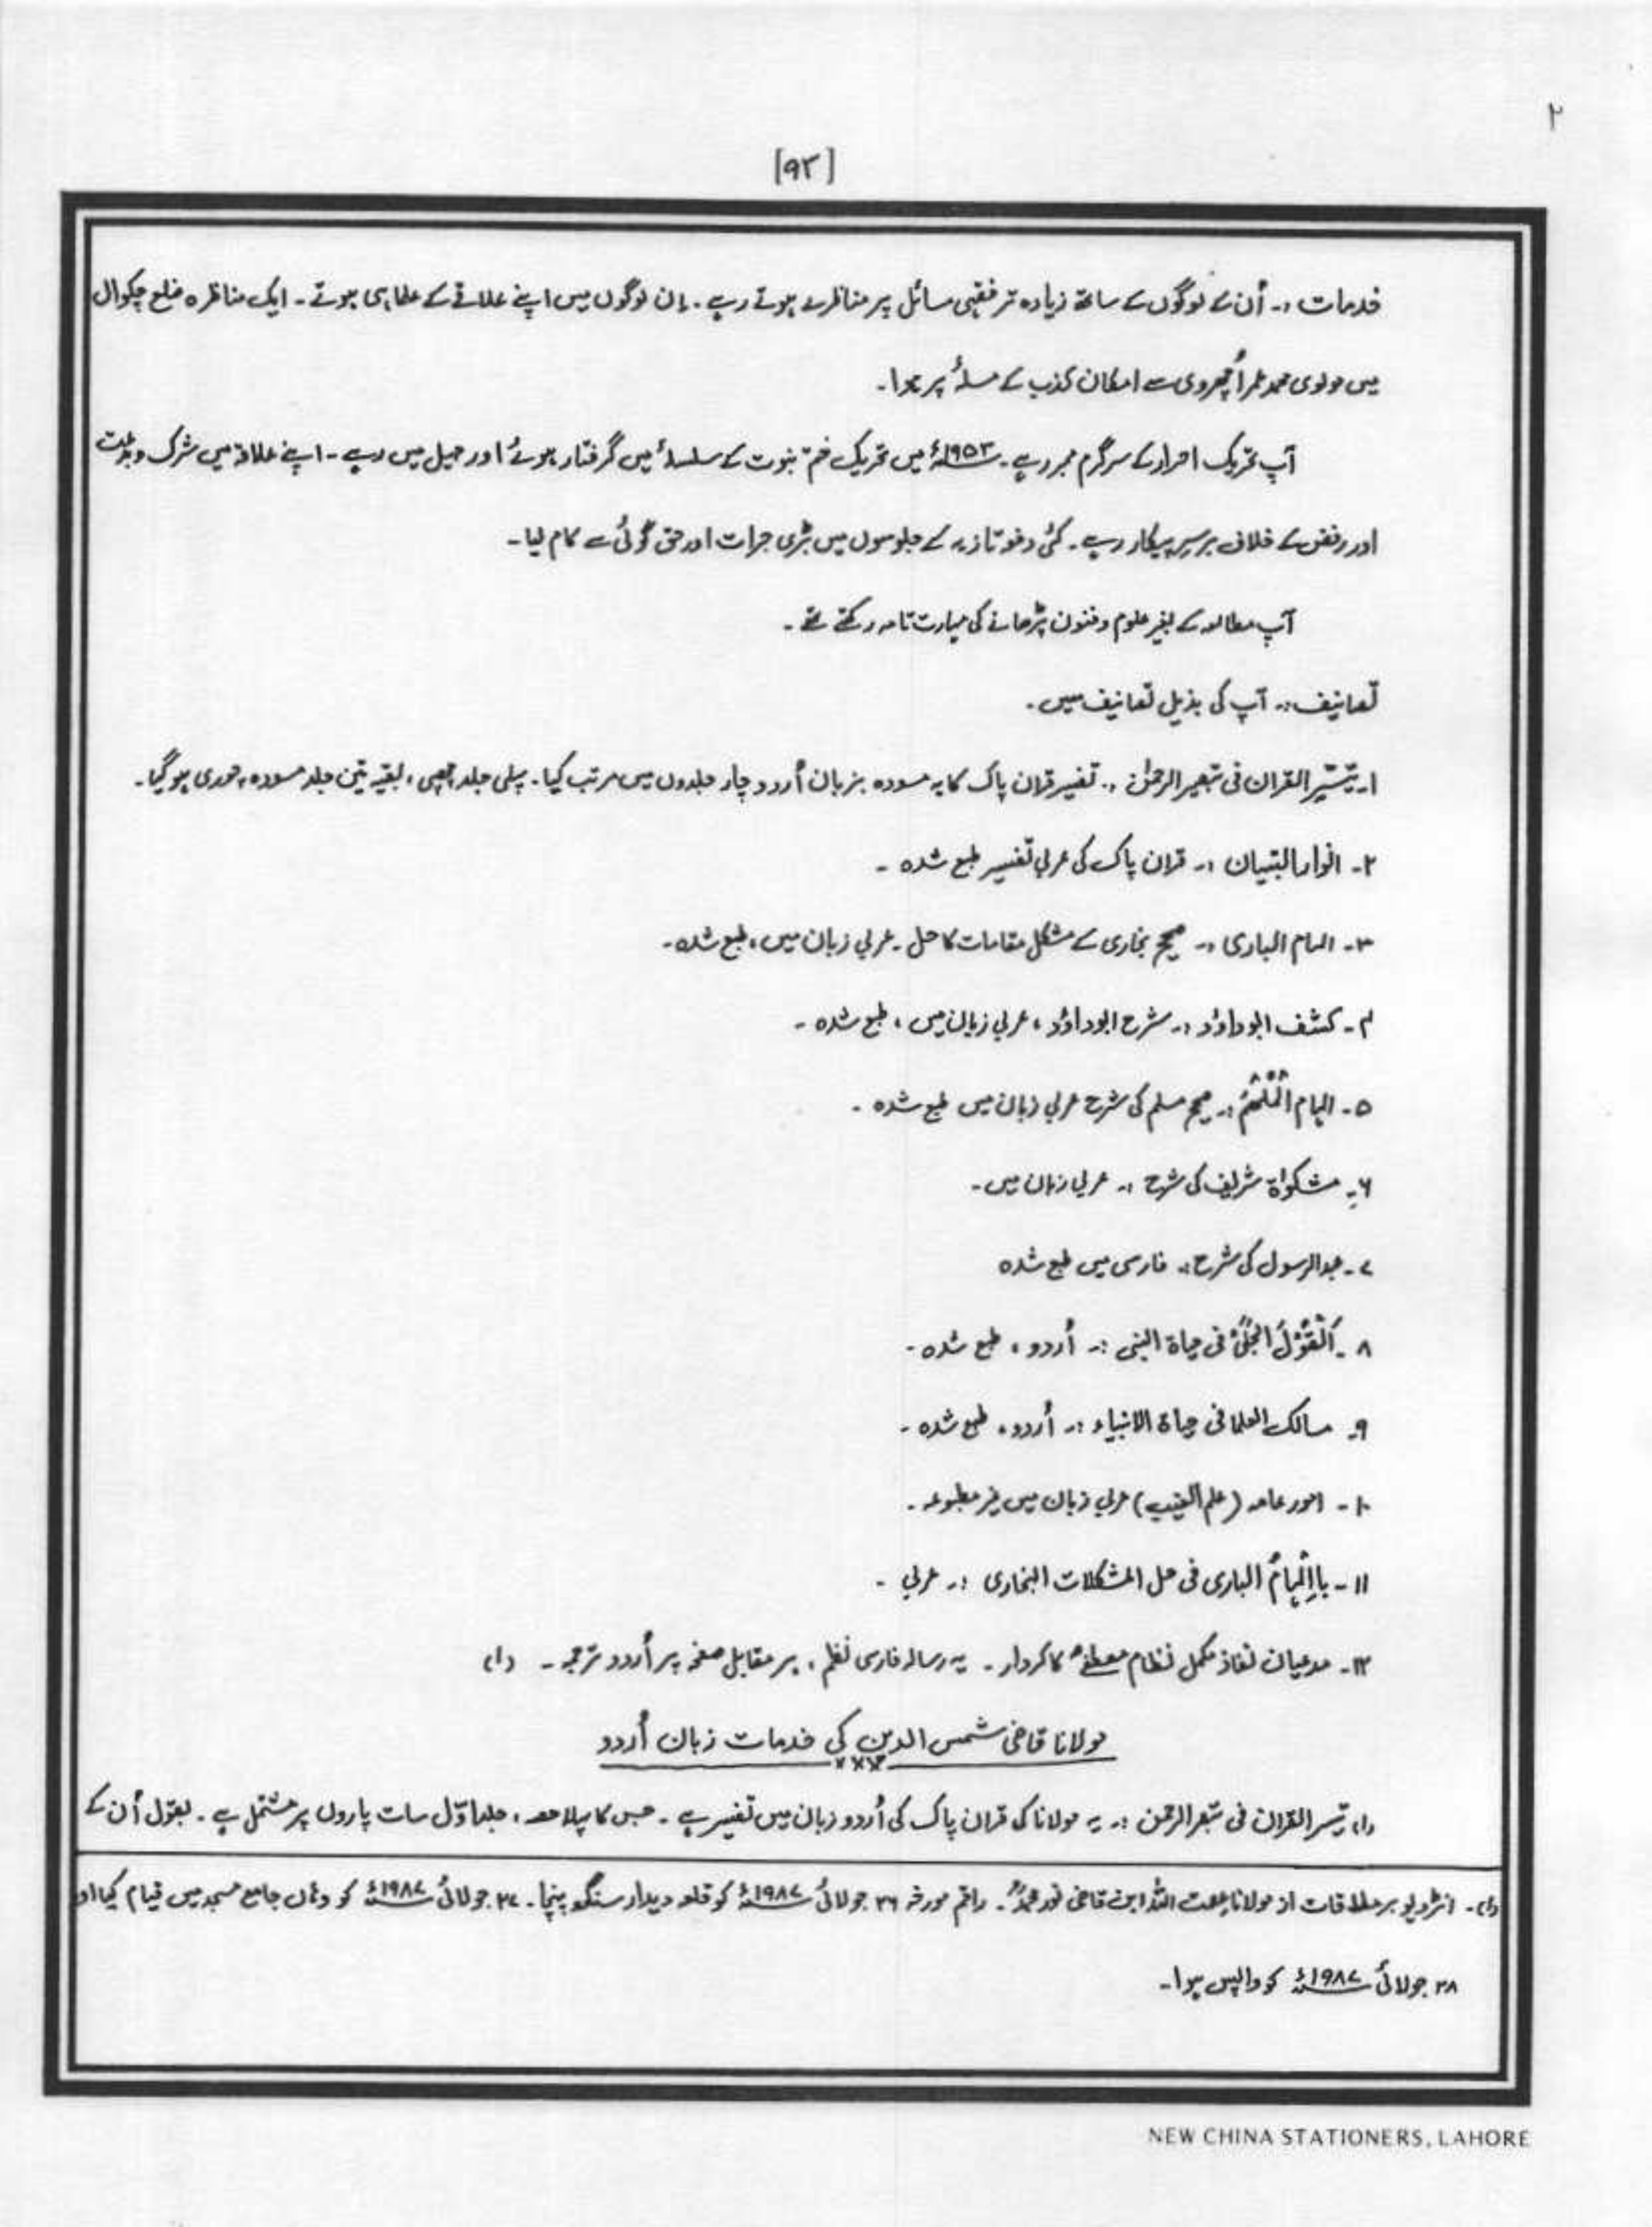 ۲
[۹۲]
خدمات :۔ اُن کے لوگوں کے ساتھ زیادہ تر فقہی مسائل پر مناظرے ہوتے رہے ۔ ان لوگوں میں اپنے علاقے کے علماء ہی ہوتے ۔ ایک مناظرہ ضلع چکوال
میں مولوی محمد عمر اُچھروی سے امکان کذب کے مسلۂ پر ہوا ۔
آپ تحریک احرار کے سرگرم ممبر رہے ۔ ۱۹۵۳ء میں تحریک ختم نبوت کے سلسلۂ میں گرفتار ہوئے اور جیل میں رہے ۔ اپنے علاقہ میں شرک و بدعت
اور رفض کے خلاف برسرِ پیکار رہے ۔ کئی دفعہ تازیہ کے جلوسوں میں بڑی جرات اور حق گوئی سے کام لیا ۔
آپ مطالعہ کے بغیر علوم و فنون پڑھانے کی مہارت تامہ رکھتے تھے ۔
تصانیف :۔ آپ کی بذیل تصانیف ہیں ۔
۱۔ تیسّیر القرآن فی تبصیر الرحمٰن :۔ تفسیر قرآن پاک کا یہ مسودہ بزبان اُردو چار جلدوں میں مرتب کیا ۔ پہلی جلد چھپی ، بقیہ تین جلد مسودہ چوری ہو گیا ۔
۲۔ انوار التبیان :۔ قرآن پاک کی عربی تفسیر طبع شدہ ۔
۳۔ الہام الباری :۔ صحیح بخاری کے مشکل مقامات کا حل ۔ عربی زبان میں ، طبع شدہ ۔
۴۔ کشف ابو داؤد :۔ شرح ابو داؤد ، عربی زبان میں ، طبع شدہ ۔
۵۔ الہام اَلمُلْہِمُ :۔ صحیح مسلم کی شرح عربی زبان میں طبع شدہ ۔
۶۔ مشکواۃ شریف کی شرح :۔ عربی زبان میں ۔
۷۔ عبدالرسول کی شرح :۔ فارسی میں طبع شدہ
۸۔ اَلْقَوْلُ الجَلِّیْ فی حیاۃ النبی :۔ اُردو ، طبع شدہ ۔
۹۔ مسالک العلما فی حیاۃ الانبیاء :۔ اُردو ، طبع شدہ ۔
۱۰۔ امور عامہ (علم الغیب) عربی زبان میں غیر مطبوعہ ۔
۱۱۔ بااِلْہَامُ الباری فی حل المشکلات البخاری :۔ عربی ۔
۱۲۔ مدعیان نفاذ مکمل نظام مصطفےٰ کا کردار ۔ یہ رسالہ فارسی نظم ، بر مقابل صفحہ پر اُردو ترجمہ ۔ (۱)
مولانا قاضی شمس الدین کی خدمات زبان اُردو
×××
(۱) تیسر القرآن فی تبصر الرحمن :۔ یہ مولانا کی قرآن پاک کی اُردو زبان میں تفسیر ہے ۔ جس کا پہلا حصہ ، جلد اوّل سات پاروں پر مشتمل ہے ۔ بقول اُن کے
(۱)۔ انٹرویو بر ملاقات از مولانا عصمت اللہ ابن قاضی نور محمدؒ ۔ راقم مورخہ ۲۶ جولائی ۱۹۸۷ء کو قلعہ دیدار سنگھ پہنچا ۔ ۲۷ جولائی ۱۹۸۷ء کو وہاں جامع مسجد میں قیام کیا اور
۲۸ جولائی ۱۹۸۷ء کو واپس ہوا ۔
NEW CHINA STATIONERS, LAHORE